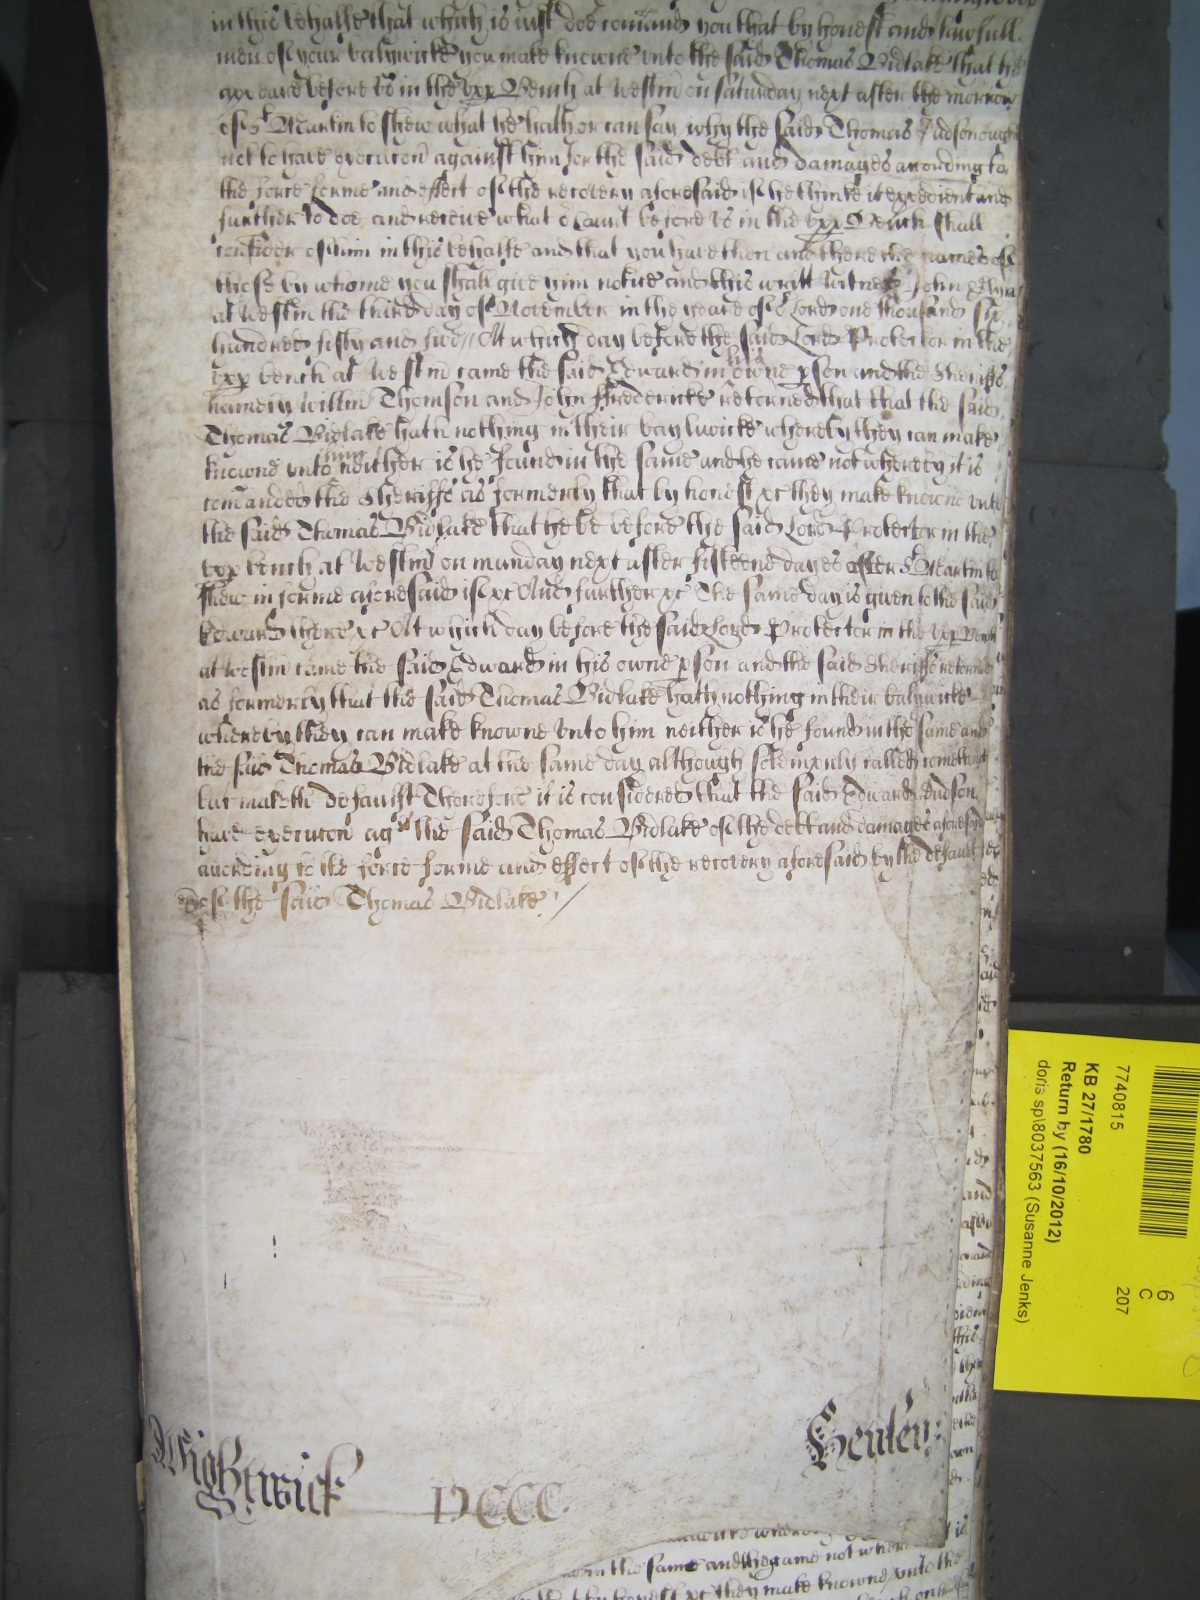 in this behalfe that which is just doe comand you that by honest and lawfull
men of your baliwicke you make knowne unto the said Thomas Bidlake that he
appeare before us in the upp Bench at Westm on saturday next after the morrow
of St Martin to shew what he hath or can say why the said Thomas Judson ought
not to have execucon against him for the said debt and damages according to
the force forme and effect of the recovery aforesaid if he thinke it expedient and
further to doe and receive what o Court before us in the upp Bench shall
consider of him in this behalfe and that you have then and there the names of
those by whome you shall give him notice and this writt Witnes John
at Westm the third day of November in the yeare of o Lord one thousand six
hundred fifty and five // At which day before the said Lord Protector in the
upp bench at Westm came the said Edward in his owne pson and the Sheriffs
namely Willm Thomson and John Ffredericke returned that that the said
Thomas Bidlake hath nothing in their bayliwicke whereby they can make
knowne unto him neither is he found in the same and he came not whereby it is
comanded the Sheriffs as formerly that by honest xc they make knowne unto
the said Thomas Bidlake that he be before the said Lord Protector in the
upp bench at Westm on munday next after fifteene dayes after St Martin to
shew in forme aforesaid if xc And further xc The same day is given to the said
Edward there xc At which day before the said Lord Protector in the upp Bench
at Westm came the said Edward in his owne pson and the said Sheriffs returned
as formerly that the said Thomas Bidlake hath nothing in their baliwicke
whereby they can make knowne unto him neither is he found in the same and
the said Thomas Bidlake at the same day although solempnly called cometh not
but maketh default Therefore it is considered that the said Edward Judson
have execucon agt the said Thomas Bidlake of the debt and damages aforesaid
according to the force forme and effect of the recovery aforesaid by the default
of the said Thomas Bidlake /
Wightwick
Henley
DCCC
in the same and he came not
they make knowne unto the
7740815
KB 27/1780
Return by (16/10/2012)
doris sp\8037563 (Susanne Jenks)
6
C
207